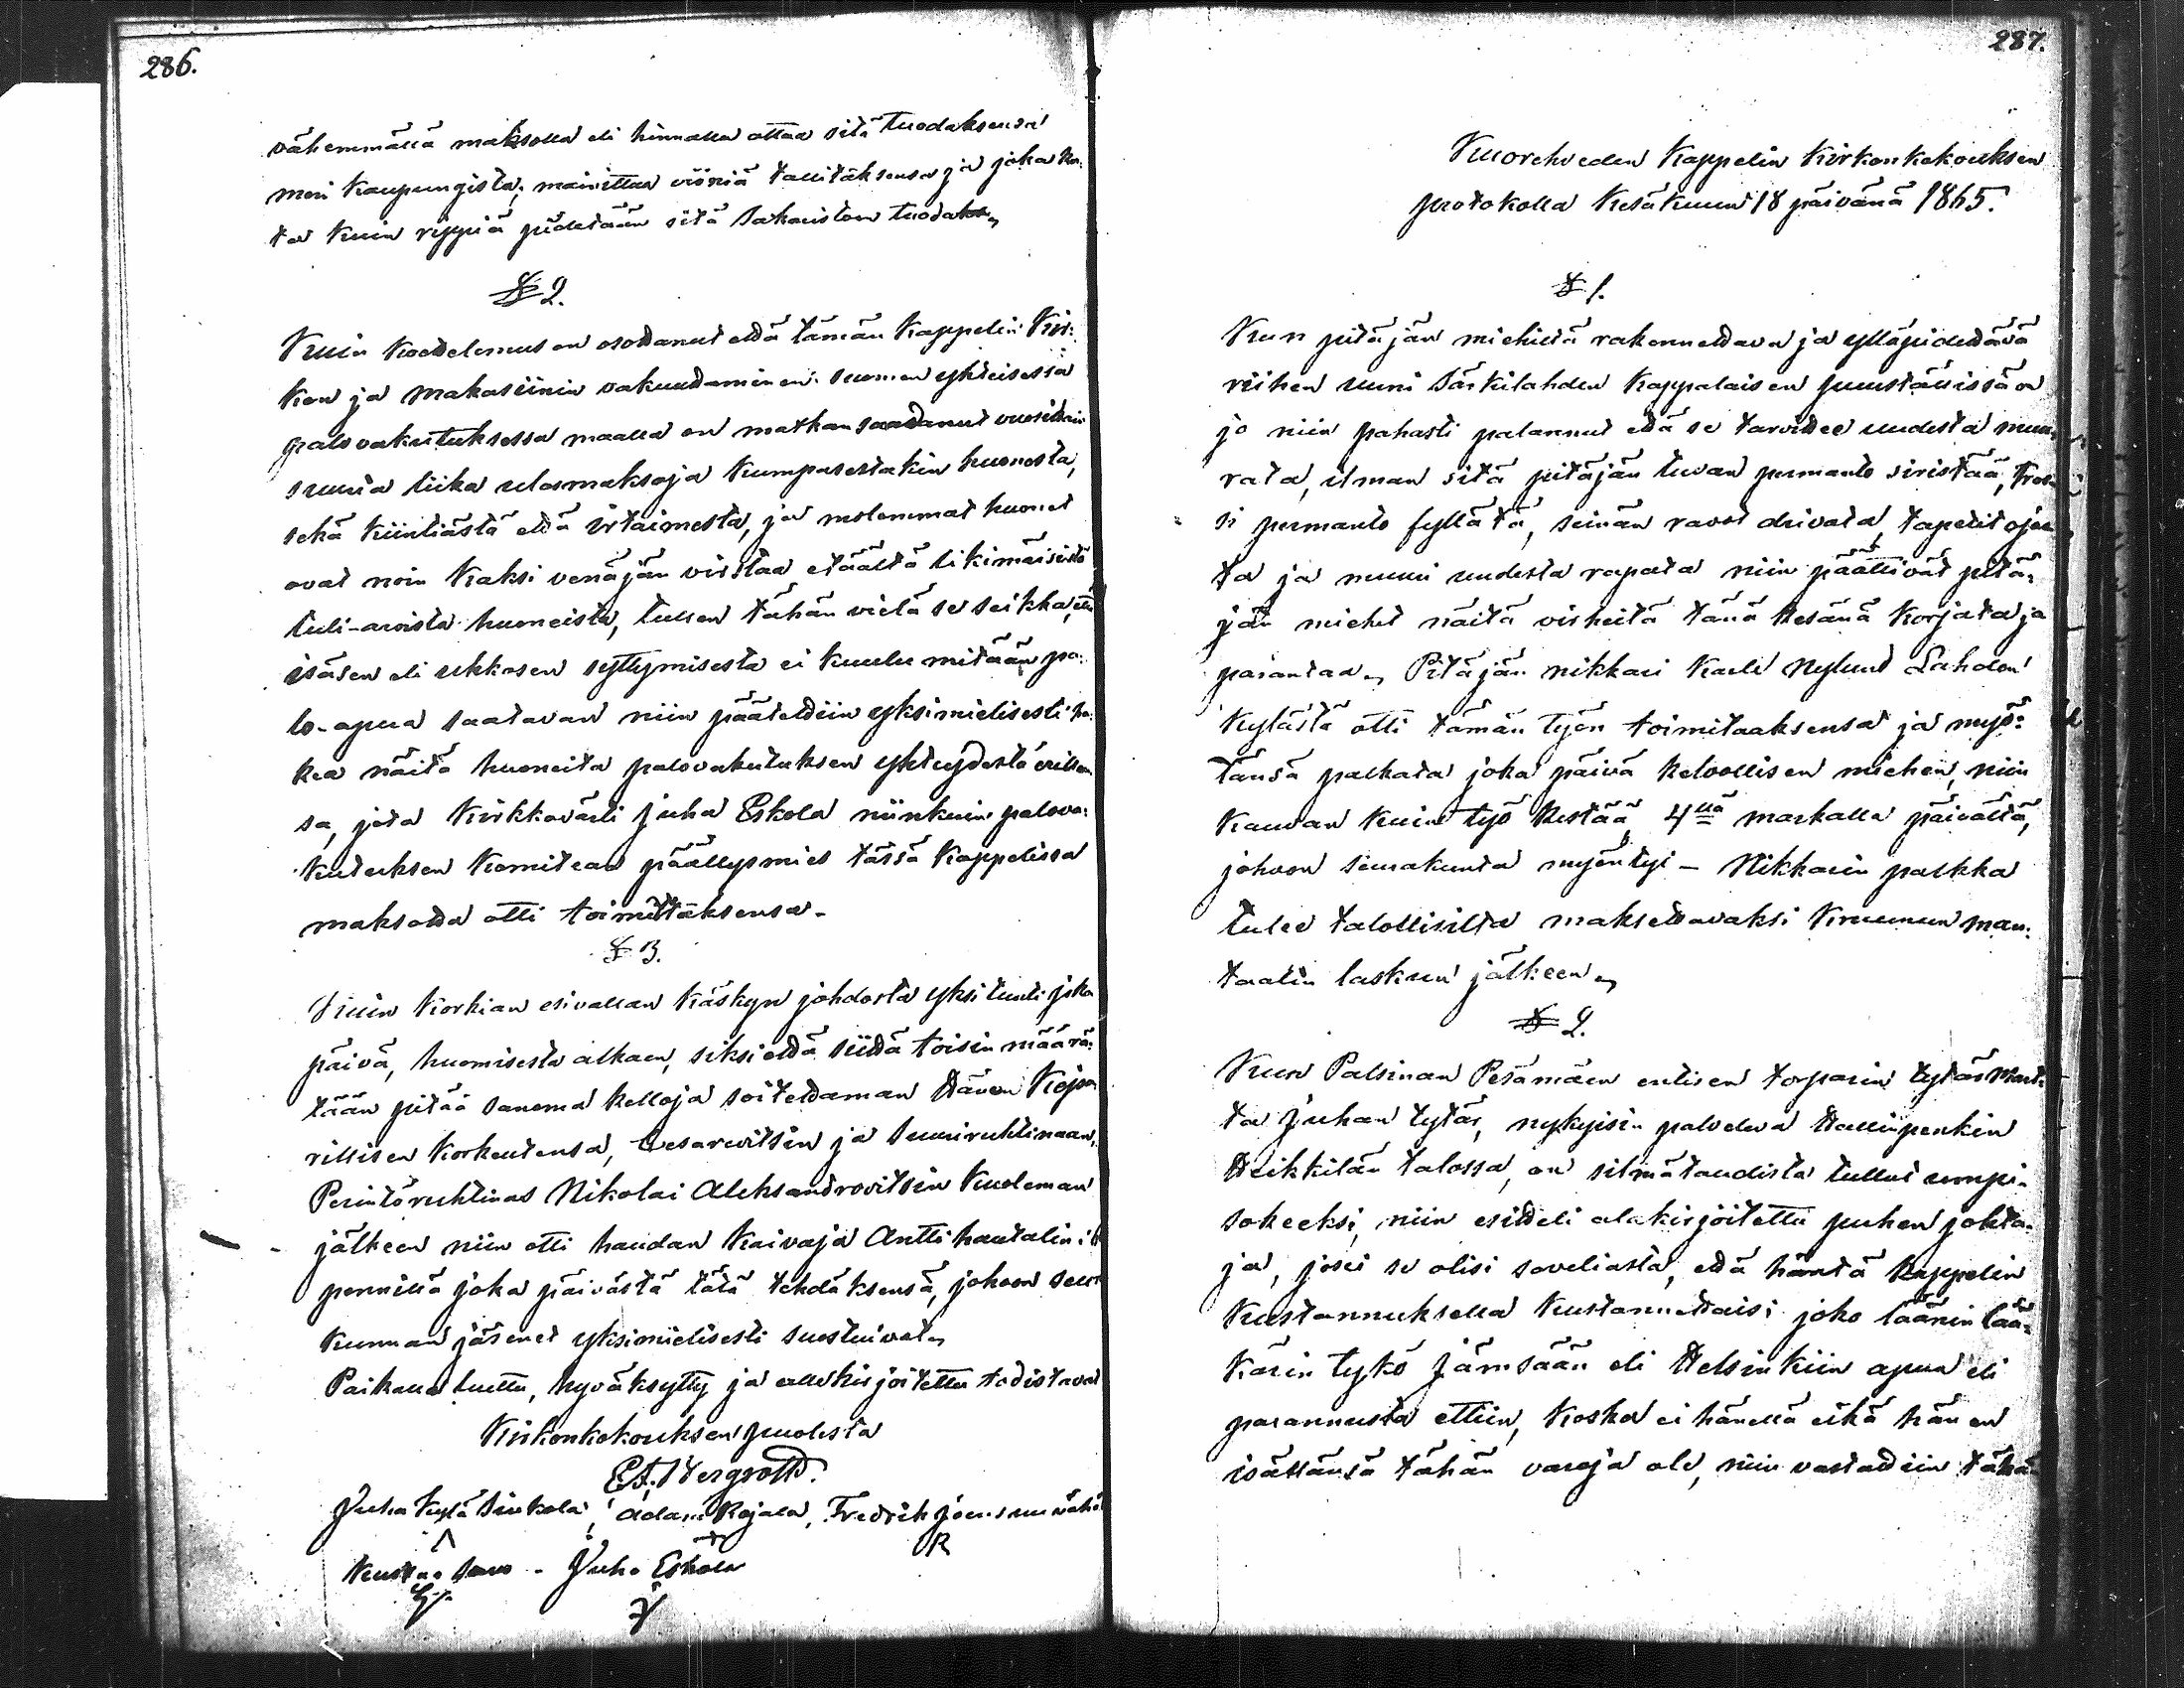 286.
vähemmällä maksolla eli hinnalla ottaa sitä tuodaksensa
meri kaupungista, mainittua viiniä tallitaksensa ja joka ker:
ta kuin rippiä pidetään sitä Sakaristoon tuodaksen
§ 2.
Kuin koettelemus on osottanut että tämän Kappelin Kir:
kon ja makasiinin vakuuttaminen Suomen yhteisessä
palovakuutuksessa maalla on matkan saattanut vuosittain
suuria liika ulosmaksoja kumpasestakin huonesta,
sekä kiintiästä että irtaimesta, ja molemmat huonet
ovat noin kaksi venäjän virstaa etäältä likimäisistä
tuli-aroista huoneista, tullen tähän vielä se seikka, että
isäsen eli ukkosen syttymisestä ei kuulu mitään pa:
lo-apua saatavan niin päätettiin yksimielisesti ha:
kea näitä huoneita palovakutuksen yhteydestä erillen
sä, jota Kirkkovärti Juha Eskola niinkuin palova:
kutuksen Komitean päällysmies tässä Kappelissa
maksotta otti toimittaksensa.
§ 3.
Kuin Korkian esivallan käskyn johdosta yksi tunti joka
päivä, huomisesta alkaen, siksi että siittä toisin määrä:
tään pitää sanoma kelloja soitettaman Hänen Keisa
rillisen Korkeutensa, Cesarevitsin ja Suuriruhtinaan,
Perintöruhtinas Nikolai Aleksandrovitsin kuoleman
jälkeen niin otti haudan kaivaja Antti Hautalin
pennillä joka päivästä tätä tehdäksensä, johoon seur
kunnan jäsenet yksimielisesti suostuivat.
Paikalla luettu, hyväksytty ja allekirjoitettu todistavat
Kirkonkokouksen puolesta
Juha Kylä Sinkola, Adam Rajala, Fredrik Joensuu
R
Kustaa - Juha Eskola
287.
Kuoreheden Kappelin Kirkonkokouksen
protokolla Kesäkuun 18 päivänä 1865.
§ 1.
Kun pitäjän miehiltä rakennettava ja ylläpidettävä
riihen uuni Särkilahden Kappalaisen puuställissä on
jo niin pahasti palannut että se tarvittee uudesta muu:
rata, ilman sitä pitäjän tuvan permanto siristää,
si permanto fyllätä, seinän raot drivata, tapetit ojen
ta ja muuri uudesta rapata niin päättivät pitä:
jän miehet näitä virheitä tänä kesänä korjata ja
parantaa. Pitäjän nikkari Karle Nylund Lahden
kylästä otti tämän työn toimitaaksensa ja myö:
tänsä palkata joka päivä kelvollisen miehen, niin
kauvan kuin työ kestää, 4llä markalla päivältä,
johoon seurakunta myöntyi – Nikkarin palkka
tulee talollisilta maksettavaksi Kruunun man:
taalin laskun jälkeen.
§ 2.
Kun Palsinan Pesämäen entisen torparin tytär Mart
ta Juhan tytär, nykyisin palveleva Hallinpenkin
Heikkilän talossa, on silmätaudista tullut umpi:
sokeeksi, niin esitteli alakirjoitettu puhen johta:
ja, josei se olisi soveliasta, että häntä kappelin
kustannuksella kustannettaisi joko läänin lää:
kärin tykö Jämsään eli Helsinkiin apua eli
parannusta ettiin, koska ei hänellä eikä hänen
isällänsä tähän varoja ole, niin vastattiin tähän